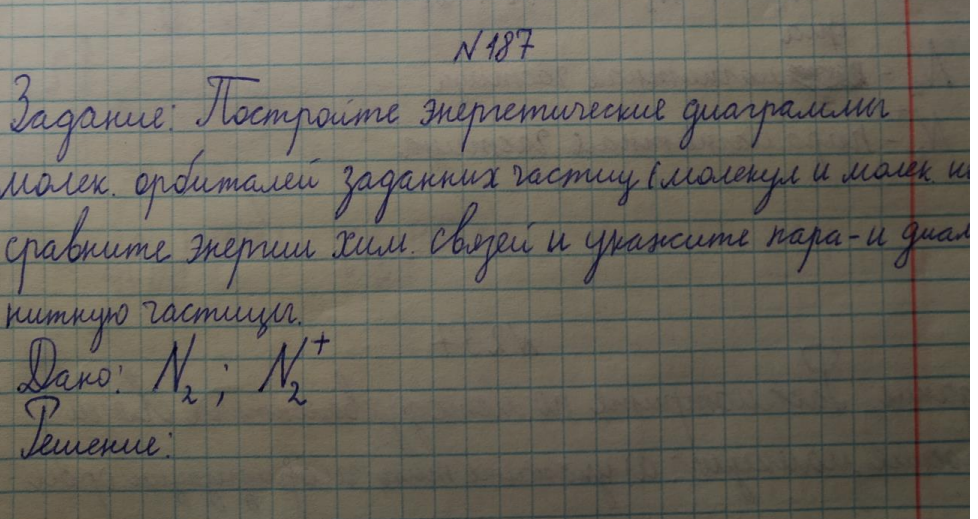 N 187
Задание: Постройте энергетические диаграммы
молек. орбиталей заданних частиц (молекул и молек. и
сравните энергии хим. связей и укажите пара- и диам
нитную частицы.
Дано: N₂ ; N₂⁺
Решение: